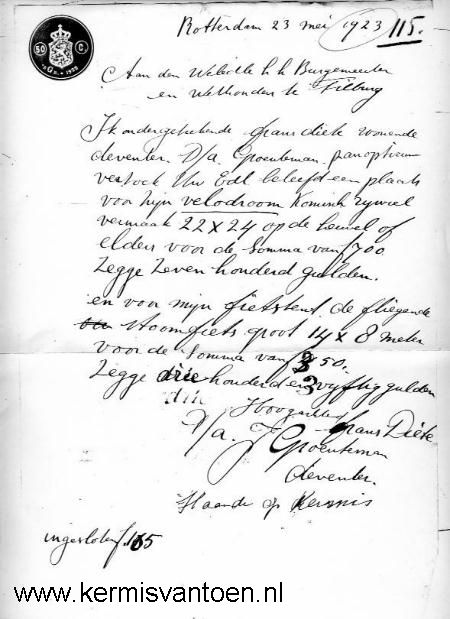 Rotterdam 23 mei 1923 115.
50 C.
Aan den Weledle h h Burgemeester
en wethouders te Tilburg
Ik ondergetekende frans diek wonende
deventer D/a. Groenteman panopticum
verzoek Uw Edl beleefd een plaats
voor zijn velodroom Komisch rijwiel
vermaak 22 x 24 op de heuvel of
elders voor de Somma van f 700
Zegge Zeven honderd gulden.
en voor mijn fietstent de fliegende
stoomfiets groot 14 x 8 meter
voor de Somma van 350.
Zegge drie honderd en vyftig gulden
drie 3
Hoogachtend
frans Diek
D/a. J Groenteman
deventer
Staande op Kermis
ingesloten f. 165
www.kermisvantoen.nl